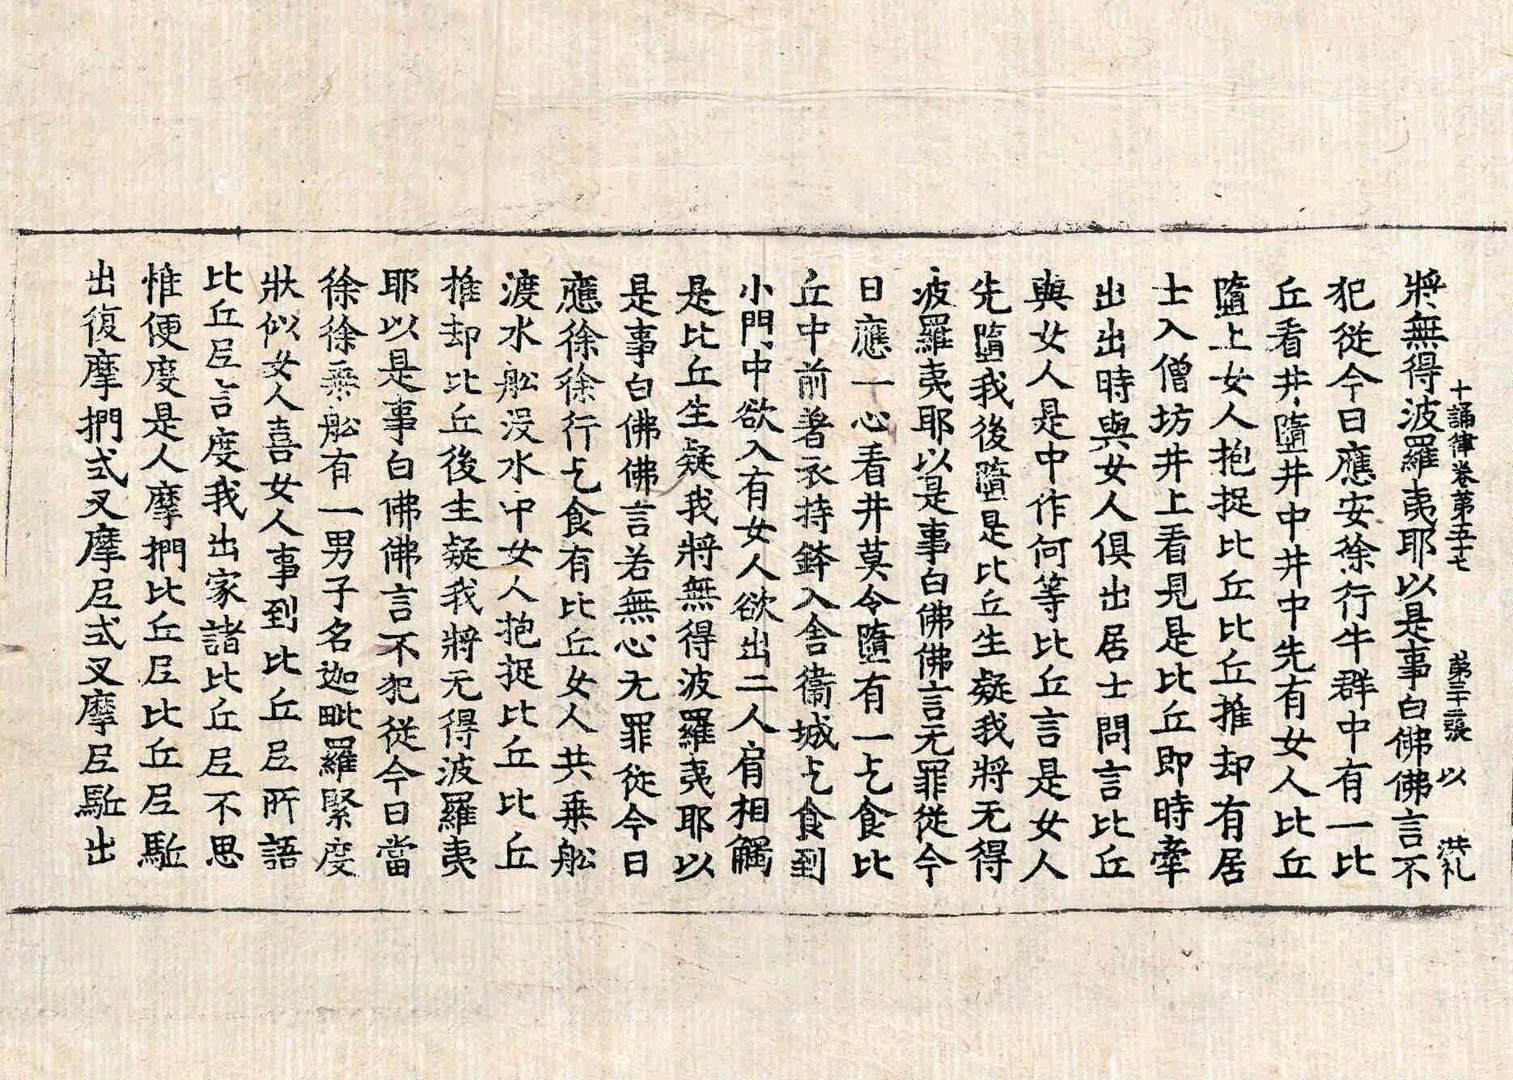 十誦律卷第五十七　第三十二張　以　洪礼
將無得波羅夷耶以是事白佛佛言不
犯從今日應安徐行牛群中有一比
丘看井墮井中井中先有女人比丘
墮上女人抱捉比丘比丘推却有居
士入僧坊井上看見是比丘即時牽
出出時與女人俱出居士問言比丘
與女人是中作何等比丘言是女人
先墮我後墮是比丘生疑我將无得
波羅夷耶以是事白佛佛言无罪從今
日應一心看井莫令墮有一乞食比
丘中前著衣持鉢入舍衛城乞食到
小門中欲入有女人欲出二人肩相觸
是比丘生疑我將無得波羅夷耶以
是事白佛佛言若無心无罪從今日
應徐徐行乞食有比丘女人共乗舩
渡水舩没水中女人抱捉比丘比丘
推却比丘後生疑我將无得波羅夷
耶以是事白佛佛言不犯從今日當
徐徐乗舩有一男子名迦毗羅緊度
狀似女人喜女人事到比丘尼所語
比丘尼言度我出家諸比丘尼不思
惟便度是人摩捫比丘尼比丘尼駈
出復摩捫式叉摩尼式叉摩尼駈出